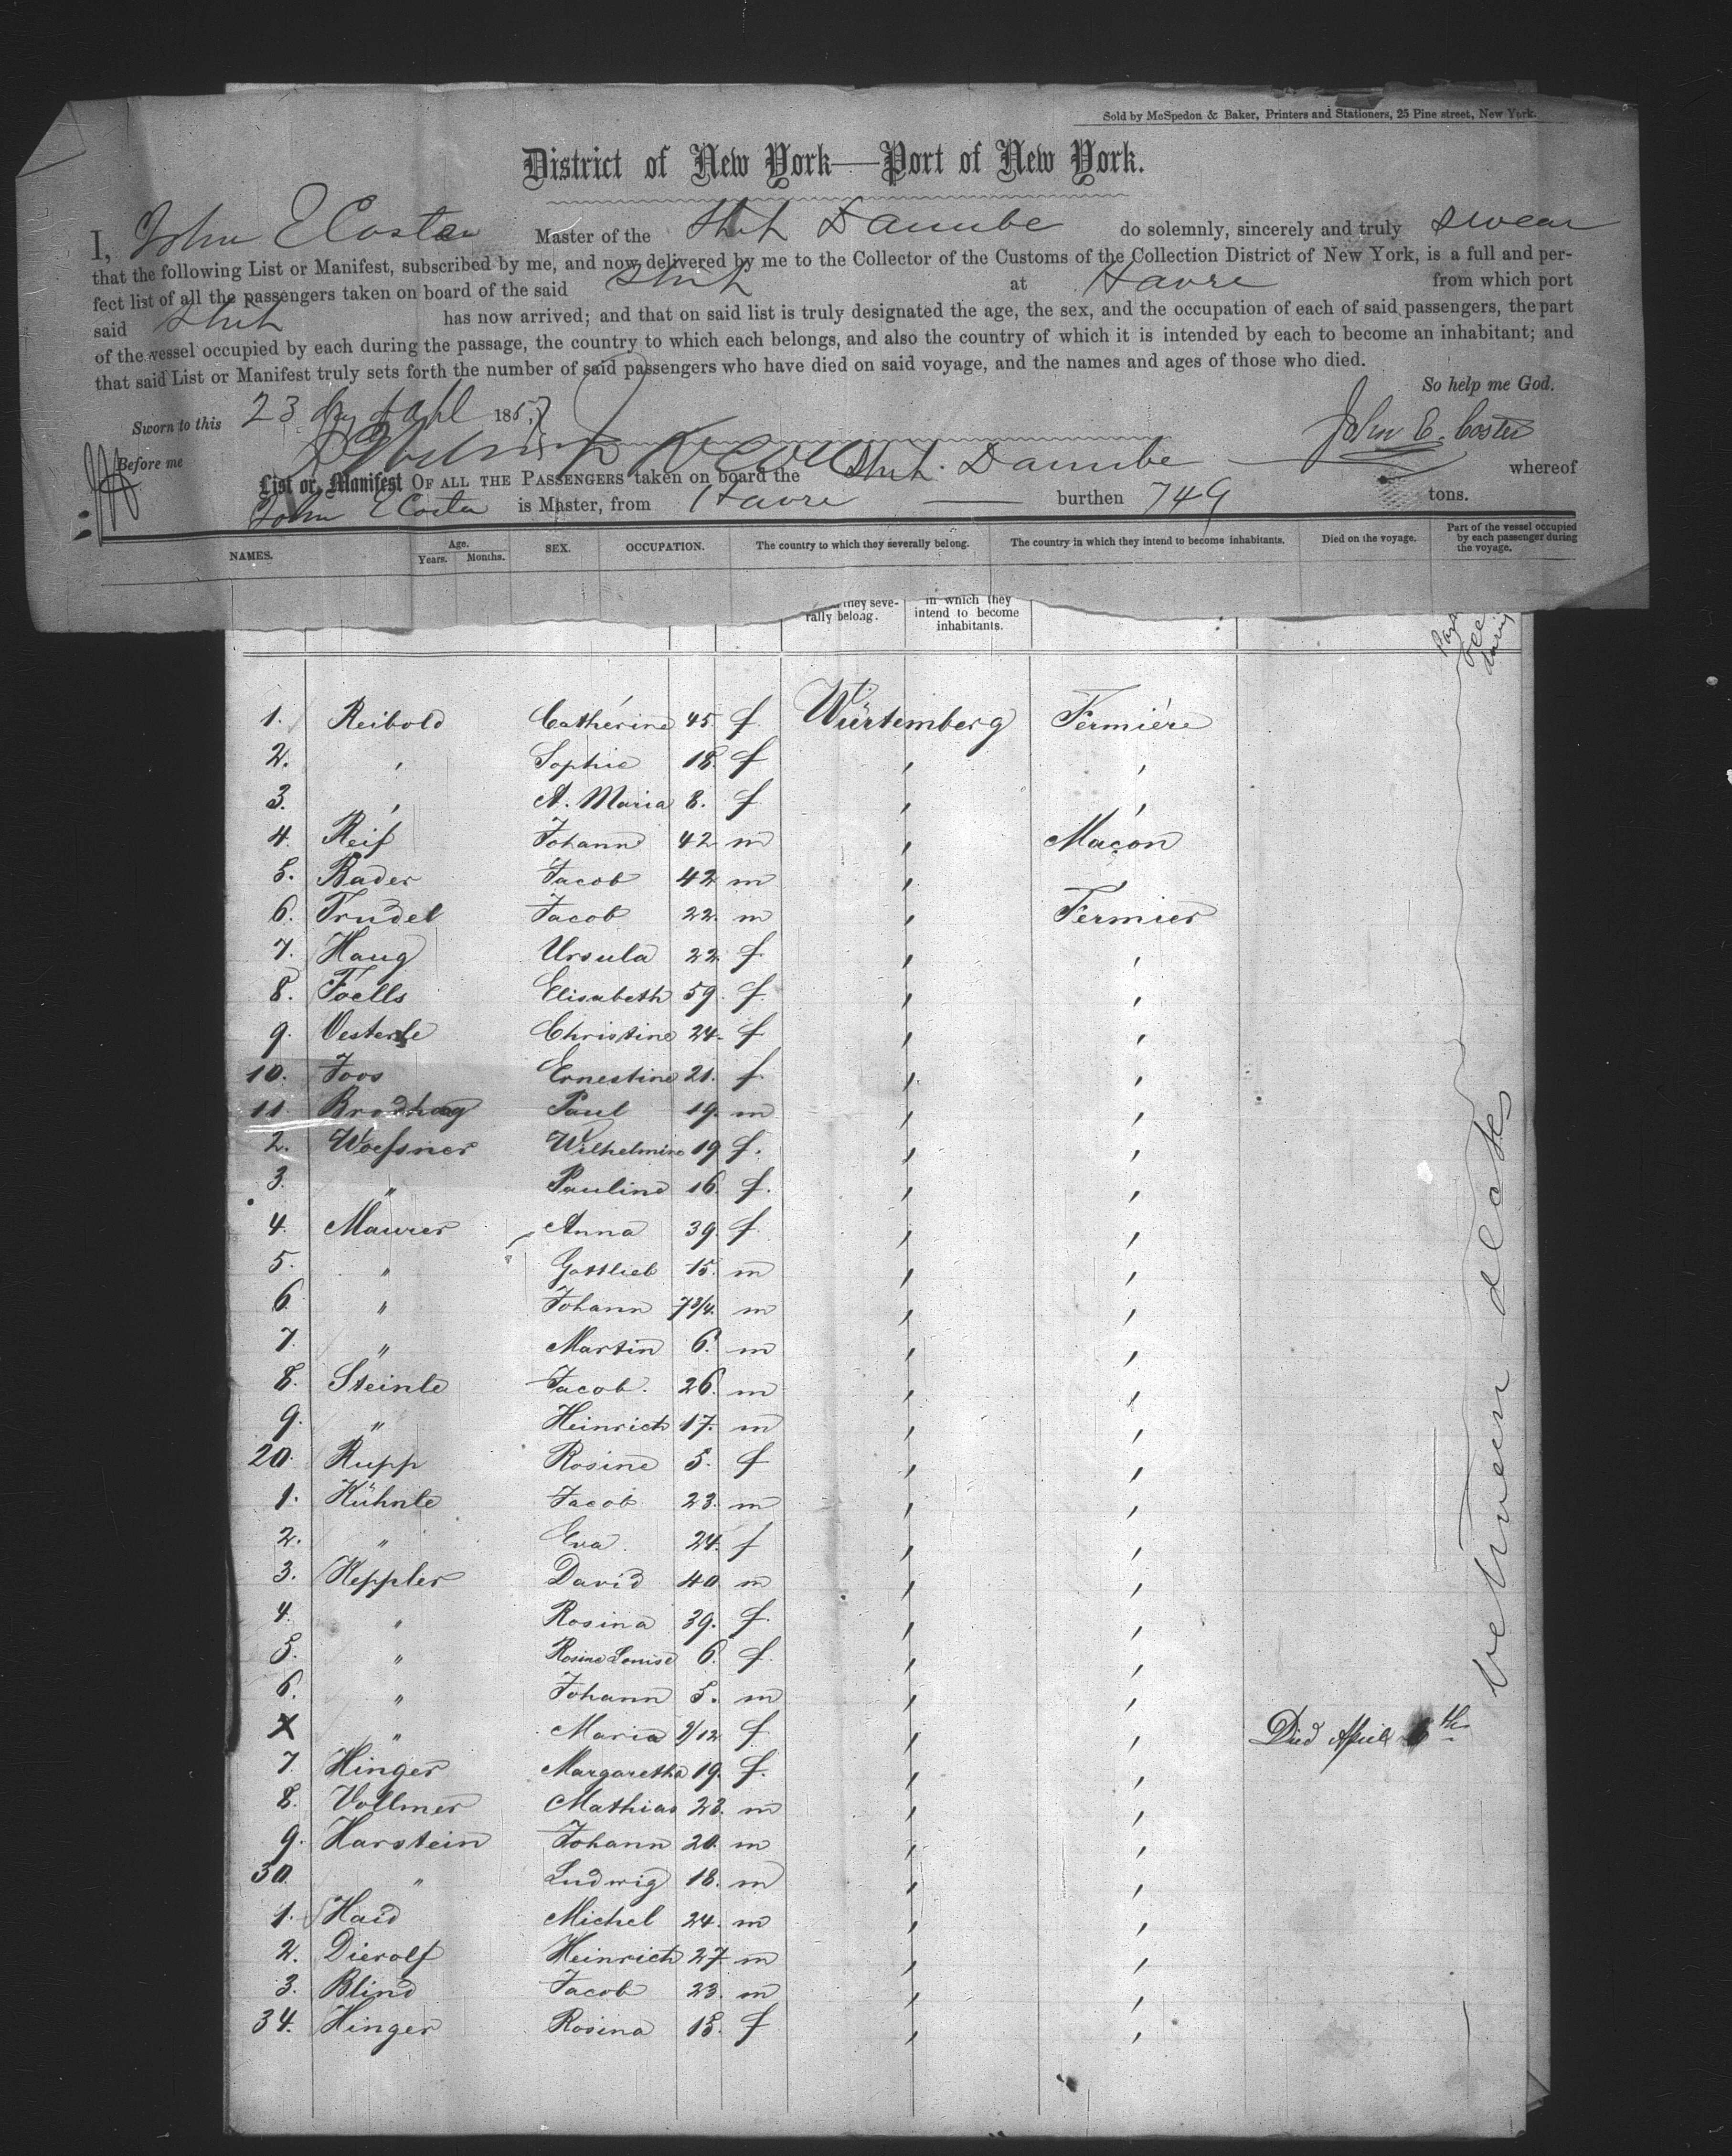 Sold by McSpedon & Baker, Printers and Stationers, 25 Pine street, New York.
District of New York—Port of New York.
I, John E Coster Master of the Ship Danube do solemnly, sincerely and truly swear
that the following List or Manifest, subscribed by me, and now delivered by me to the Collector of the Customs of the Collection District of New York, is a full and per-
fect list of all the passengers taken on board of the said Ship at Havre from which port
said Ship has now arrived; and that on said list is truly designated the age, the sex, and the occupation of each of said passengers, the part
of the vessel occupied by each during the passage, the country to which each belongs, and also the country of which it is intended by each to become an inhabitant; and
that said List or Manifest truly sets forth the number of said passengers who have died on said voyage, and the names and ages of those who died.
So help me God.
Sworn to this 23 day of Apl 1857
John E. Coster
Before me
List or Manifest OF ALL THE PASSENGERS taken on board the Ship Danube whereof
John E Coster is Master, from Havre burthen 749 tons.
NAMES. Age. Years. Months. SEX. OCCUPATION. The country to which they severally belong. The country in which they intend to become inhabitants. Died on the voyage. Part of the vessel occupied by each passenger during the voyage.
they seve-
rally belong.
in which they
intend to become
inhabitants.
1. Reibold Cathérine 45 f. Würtemberg Fermière
2. , Sophie 18. f , ,
3. , A. Maria 8. f , ,
4. Reif Johann 42 m , Maçon
5. Bader Jacob 42 m ,
6. Trudel Jacob 22. m , Fermier
7. Haug Ursula 22. f. , ,
8. Foells Elisabeth 59. f. , ,
9. Oesterle Christine 24. f , ,
10. Joos Ernestine 21. f. , ,
11. Brodhag Paul 19. m , ,
2. Woessner Wilhelmine 19 f. , ,
3. " Pauline 16. f. , ,
4. Maurer Anna 39. f , ,
5. " Gottlieb 15. m , ,
6. " Johann 7 3/4. m , ,
7. " Martin 6. m , ,
8. Steinle Jacob. 26. m , ,
9. " Heinrich 17. m , ,
20. Rupp Rosine 5. f , ,
1. Kühnle Jacob 23. m , ,
2. " Eva. 24. f , ,
3. Keppler David 40. m , ,
4. " Rosina 39. f. , ,
5. " Rosine Louise 6. f. , ,
6. " Johann 5. m , ,
X " Maria /12 f , , Died April 6th
7. Hinger Margaretha 19. f. , ,
8. Vollmer Mathias 23. m , ,
9. Harstein Johann 20. m , ,
30. " Ludwig 18. m , ,
1. Haid Michel 24. m , ,
2. Dierolf Heinrich 27 m , ,
3. Blind Jacob 23. m , ,
34. Hinger Rosina 18. f , ,
between decks